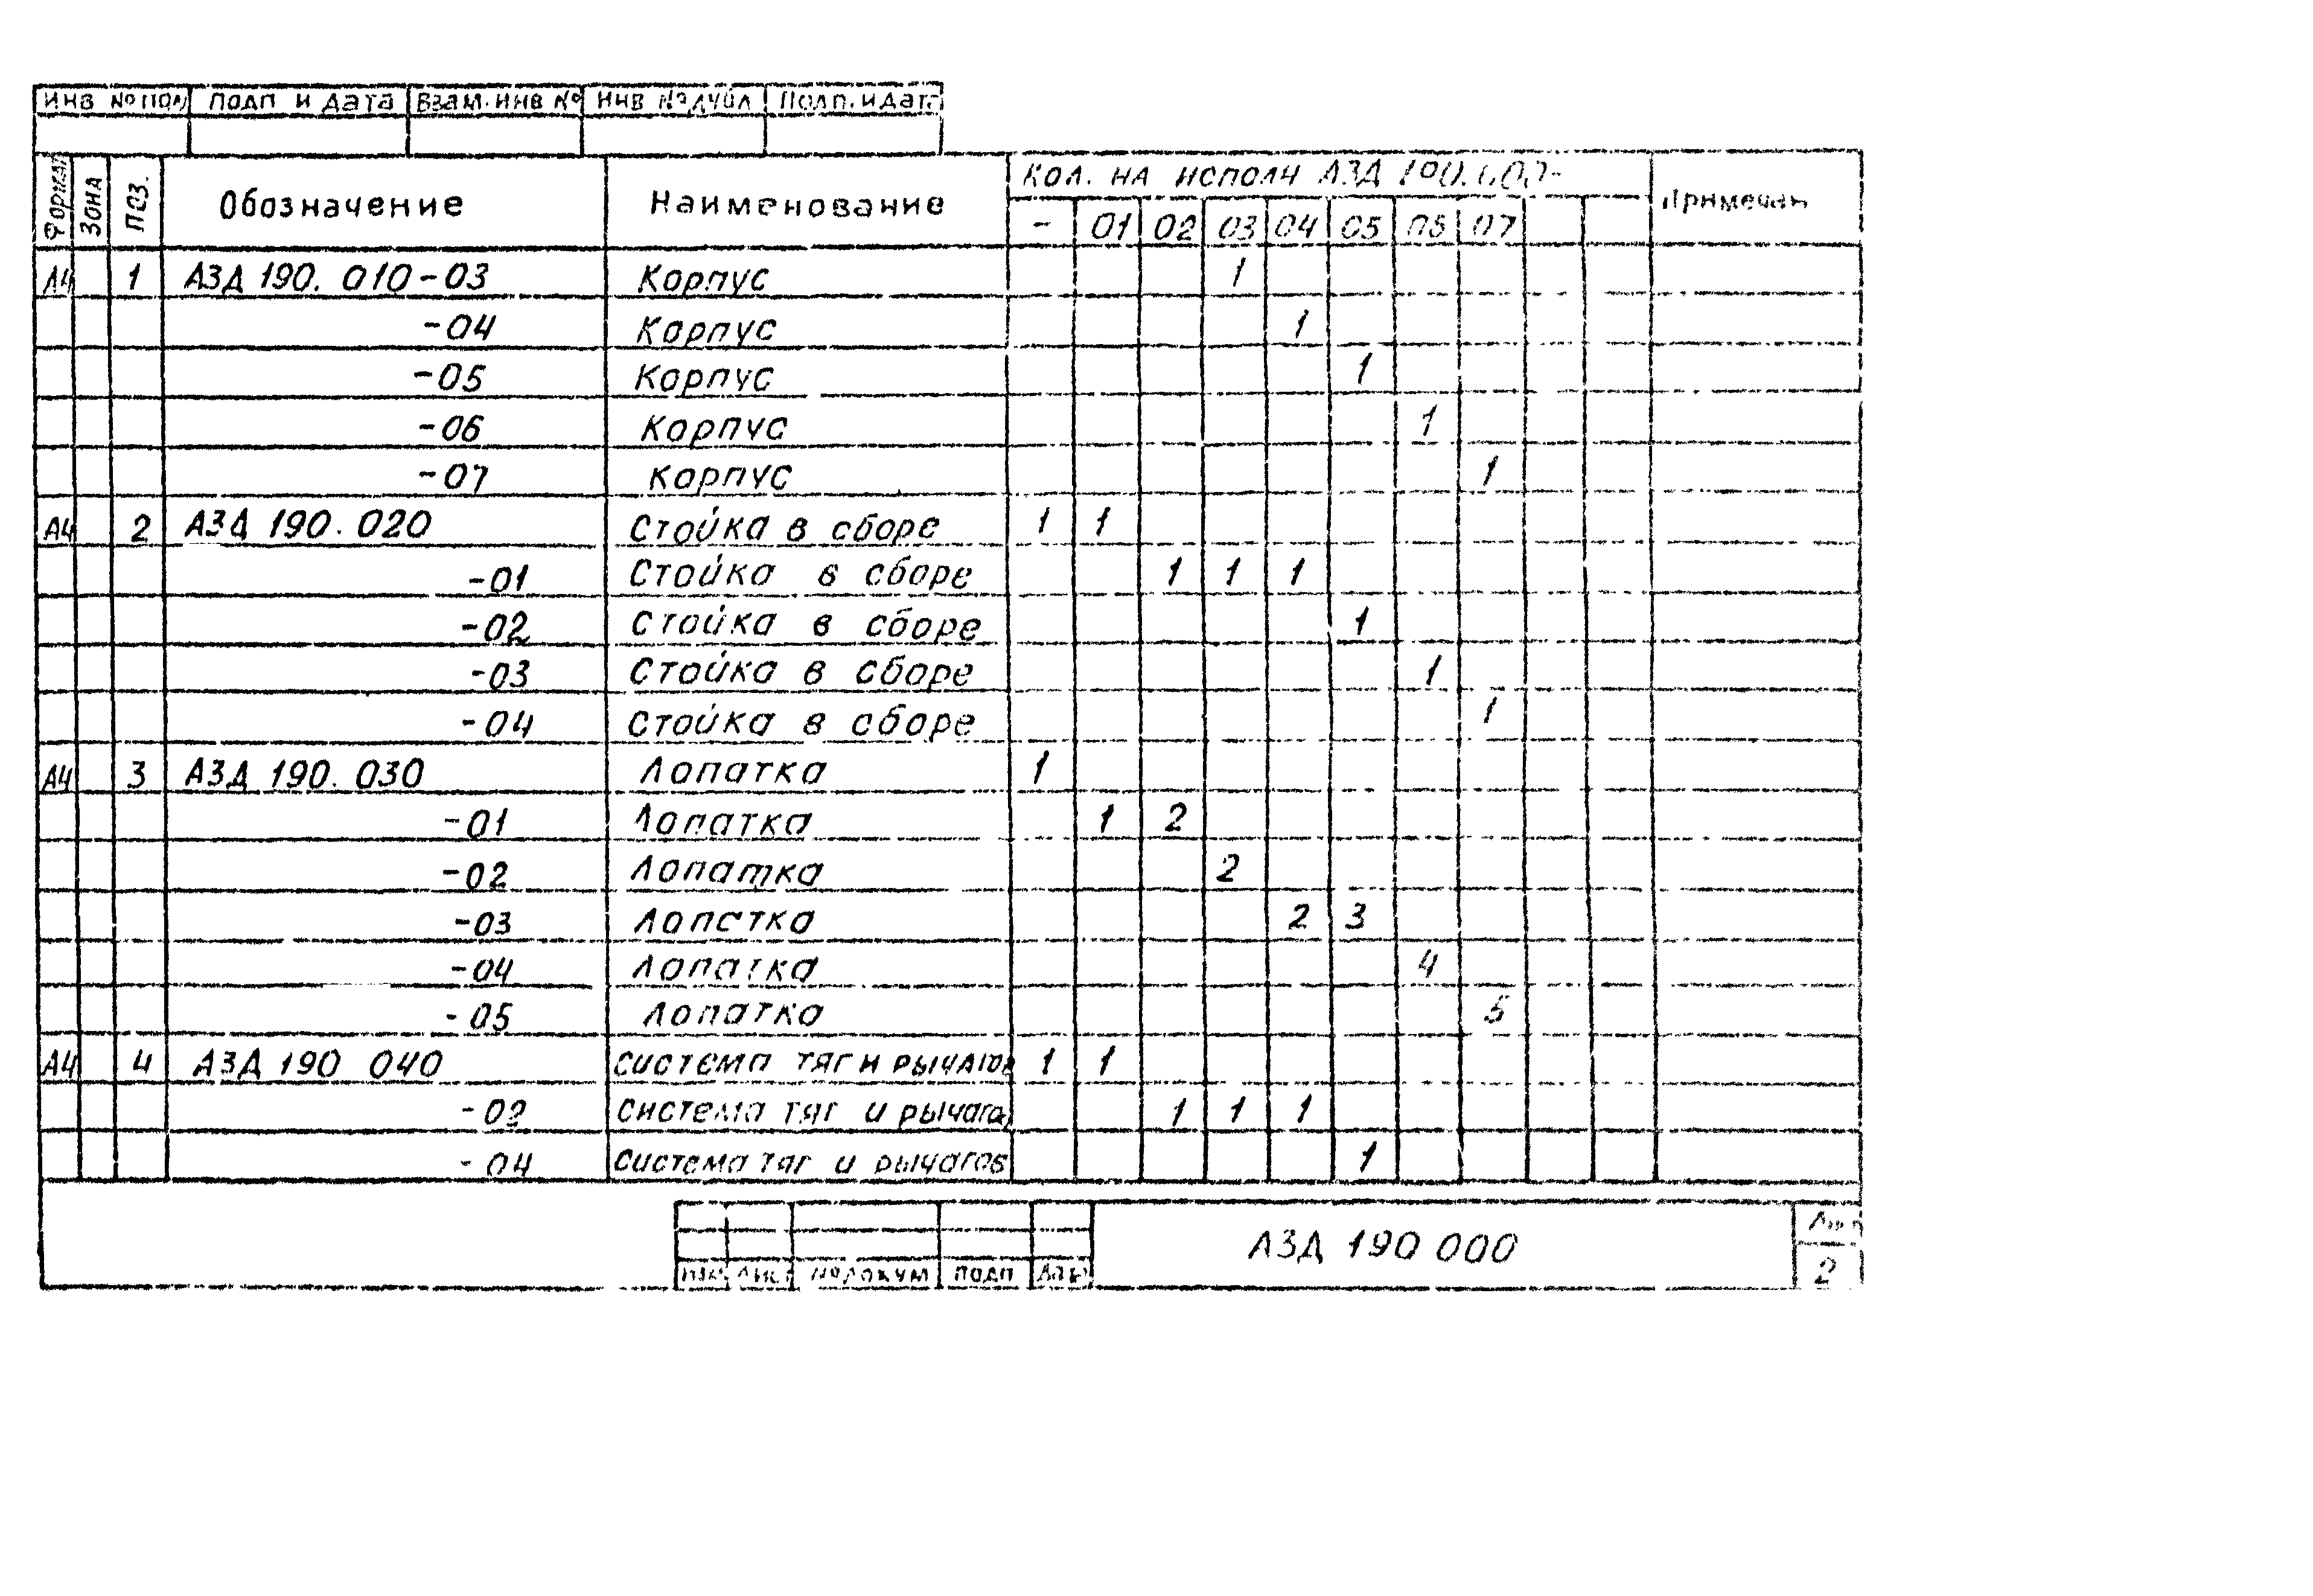 Инв № подл Подп и дата Взам. инв № Инв № дубл Подп. и дата
Формат Зона Поз. Обозначение Наименование Кол. на исполн АЗД 190.000- Примечан
- 01 02 03 04 05 06 07
А4 1 АЗД 190.010-03 Корпус 1
-04 Корпус 1
-05 Корпус 1
-06 Корпус 1
-07 Корпус 1
А4 2 АЗД 190.020 Стойка в сборе 1 1
-01 Стойка в сборе 1 1 1
-02 Стойка в сборе 1
-03 Стойка в сборе 1
-04 Стойка в сборе 1
А4 3 АЗД 190.030 Лопатка 1
-01 Лопатка 1 2
-02 Лопатка 2
-03 Лопатка 2 3
-04 Лопатка 4
-05 Лопатка 5
А4 4 АЗД 190 040 Система тяг и рычагов 1 1
-02 Система тяг и рычагов 1 1 1
-04 Система тяг и рычагов 1
Изм Лист № докум Подп Дата АЗД 190 000 Лист
2